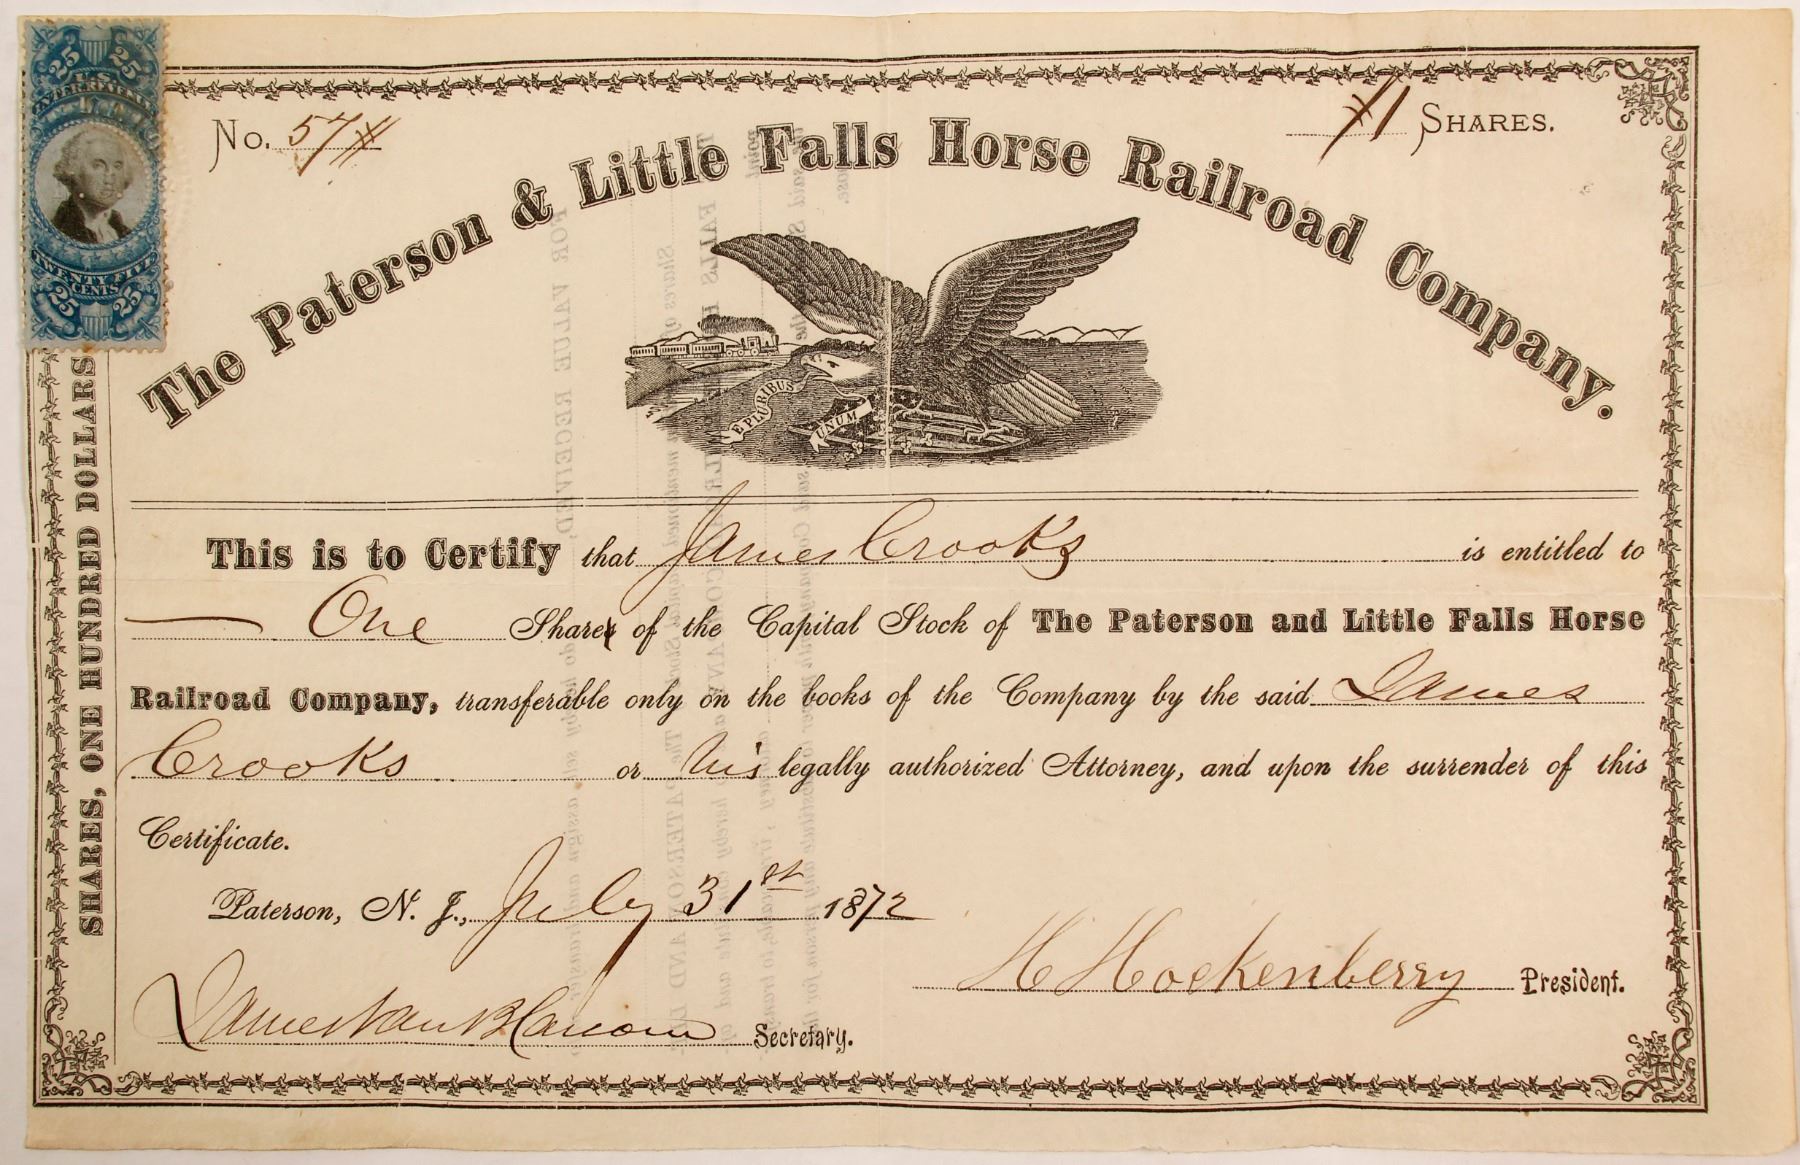 25 25
U.S.
INTER. REVENUE
TWENTY FIVE
CENTS
25 25
No. 57 #
#1 SHARES.
The Paterson & Little Falls Horse Railroad Company.
E PLURIBUS
UNUM
SHARES, ONE HUNDRED DOLLARS
This is to Certify that James Crooks is entitled to
One Shares of the Capital Stock of The Paterson and Little Falls Horse
Railroad Company, transferable only on the books of the Company by the said James
Crooks or his legally authorized Attorney, and upon the surrender of this
Certificate.
Paterson, N. J., July 31st 1872
H Hockenberry President.
James Van Blarcom Secretary.